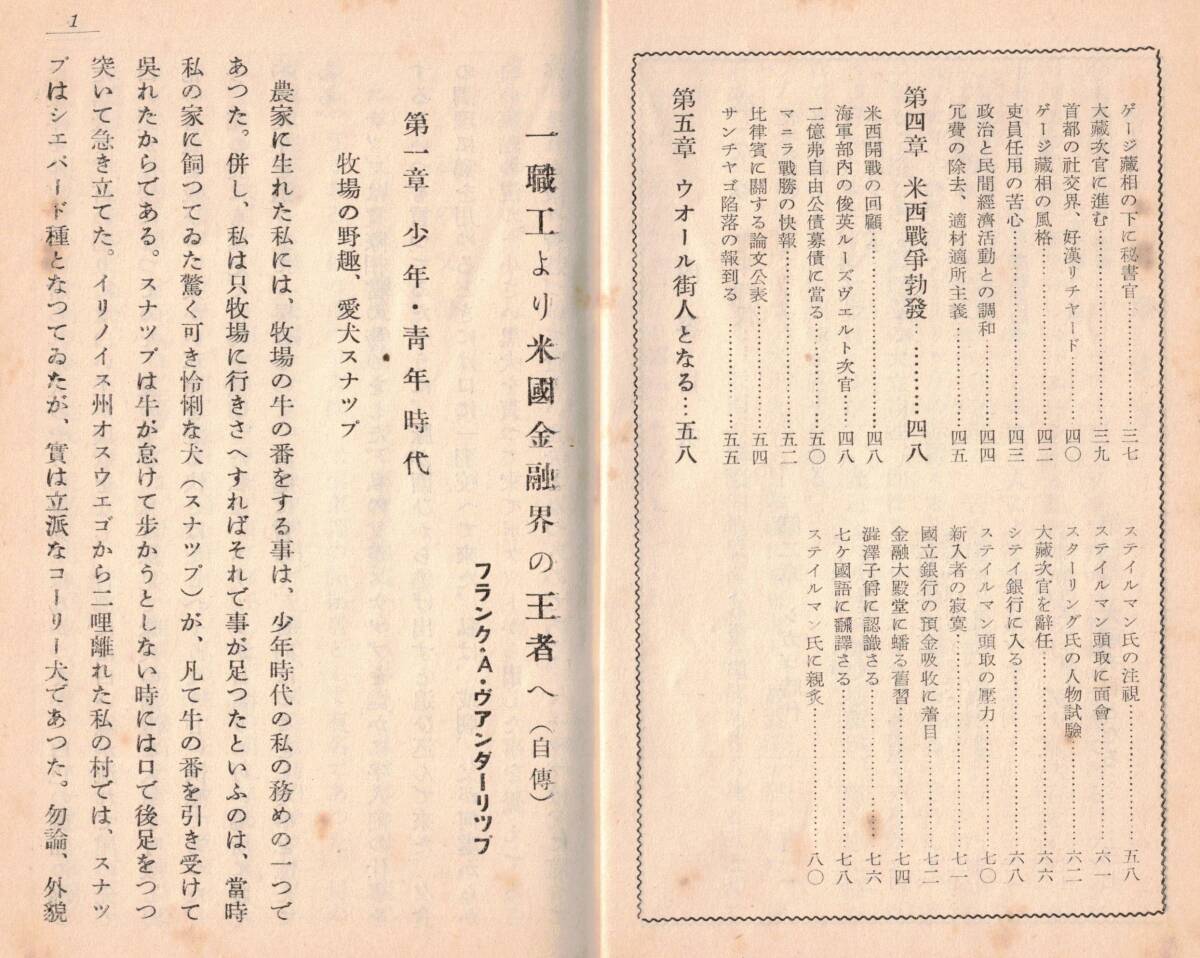 ゲージ藏相の下に秘書官…………三七
大藏次官に進む…………三九
首都の社交界、好漢リチャード…………四〇
ゲージ藏相の風格…………四二
吏員任用の苦心…………四三
政治と民間經濟活動との調和…………四四
冗費の除去、適材適所主義…………四五
第四章　米西戰爭勃發…………四八
米西開戰の回顧…………四八
海軍部內の俊英ルーズヴエルト次官……四八
二億弗自由公債募債に當る…………五〇
マニラ戰勝の快報…………五二
比律賓に關する論文公表…………五四
サンチヤゴ陷落の報到る…………五五
第五章　ウオール街人となる…五八
ステイルマン氏の注視…………五八
ステイルマン頭取に面會…………六一
スターリング氏の人物試驗…………六二
大藏次官を辭任…………六六
シテイ銀行に入る…………六八
ステイルマン頭取の壓力…………七〇
新入者の寂寞…………七一
國立銀行の預金吸收に着目…………七二
金融大殿堂に蟠る舊習…………七四
澁澤子爵に認識さる…………七六
七ケ國語に飜譯さる…………七八
ステイルマン氏に親炙…………八〇
一職工より米國金融界の王者へ（自傳）
フランク・A・ヴアンダーリツプ
第一章　少年・靑年時代
牧場の野趣、愛犬スナツプ
農家に生れた私には、牧場の牛の番をする事は、少年時代の私の務めの一つで
あつた。併し、私は只牧場に行きさへすればそれで事が足つたといふのは、當時
私の家に飼つてゐた驚く可き怜悧な犬（スナツプ）が、凡て牛の番を引き受けて
吳れたからである。スナツプは牛が怠けて步かうとしない時には口で後足をつつ
突いて急き立てた。イリノイス州オスウエゴから二哩離れた私の村では、スナツ
プはシエパード種となつてゐたが、實は立派なコーリー犬であつた。勿論、外貌
1